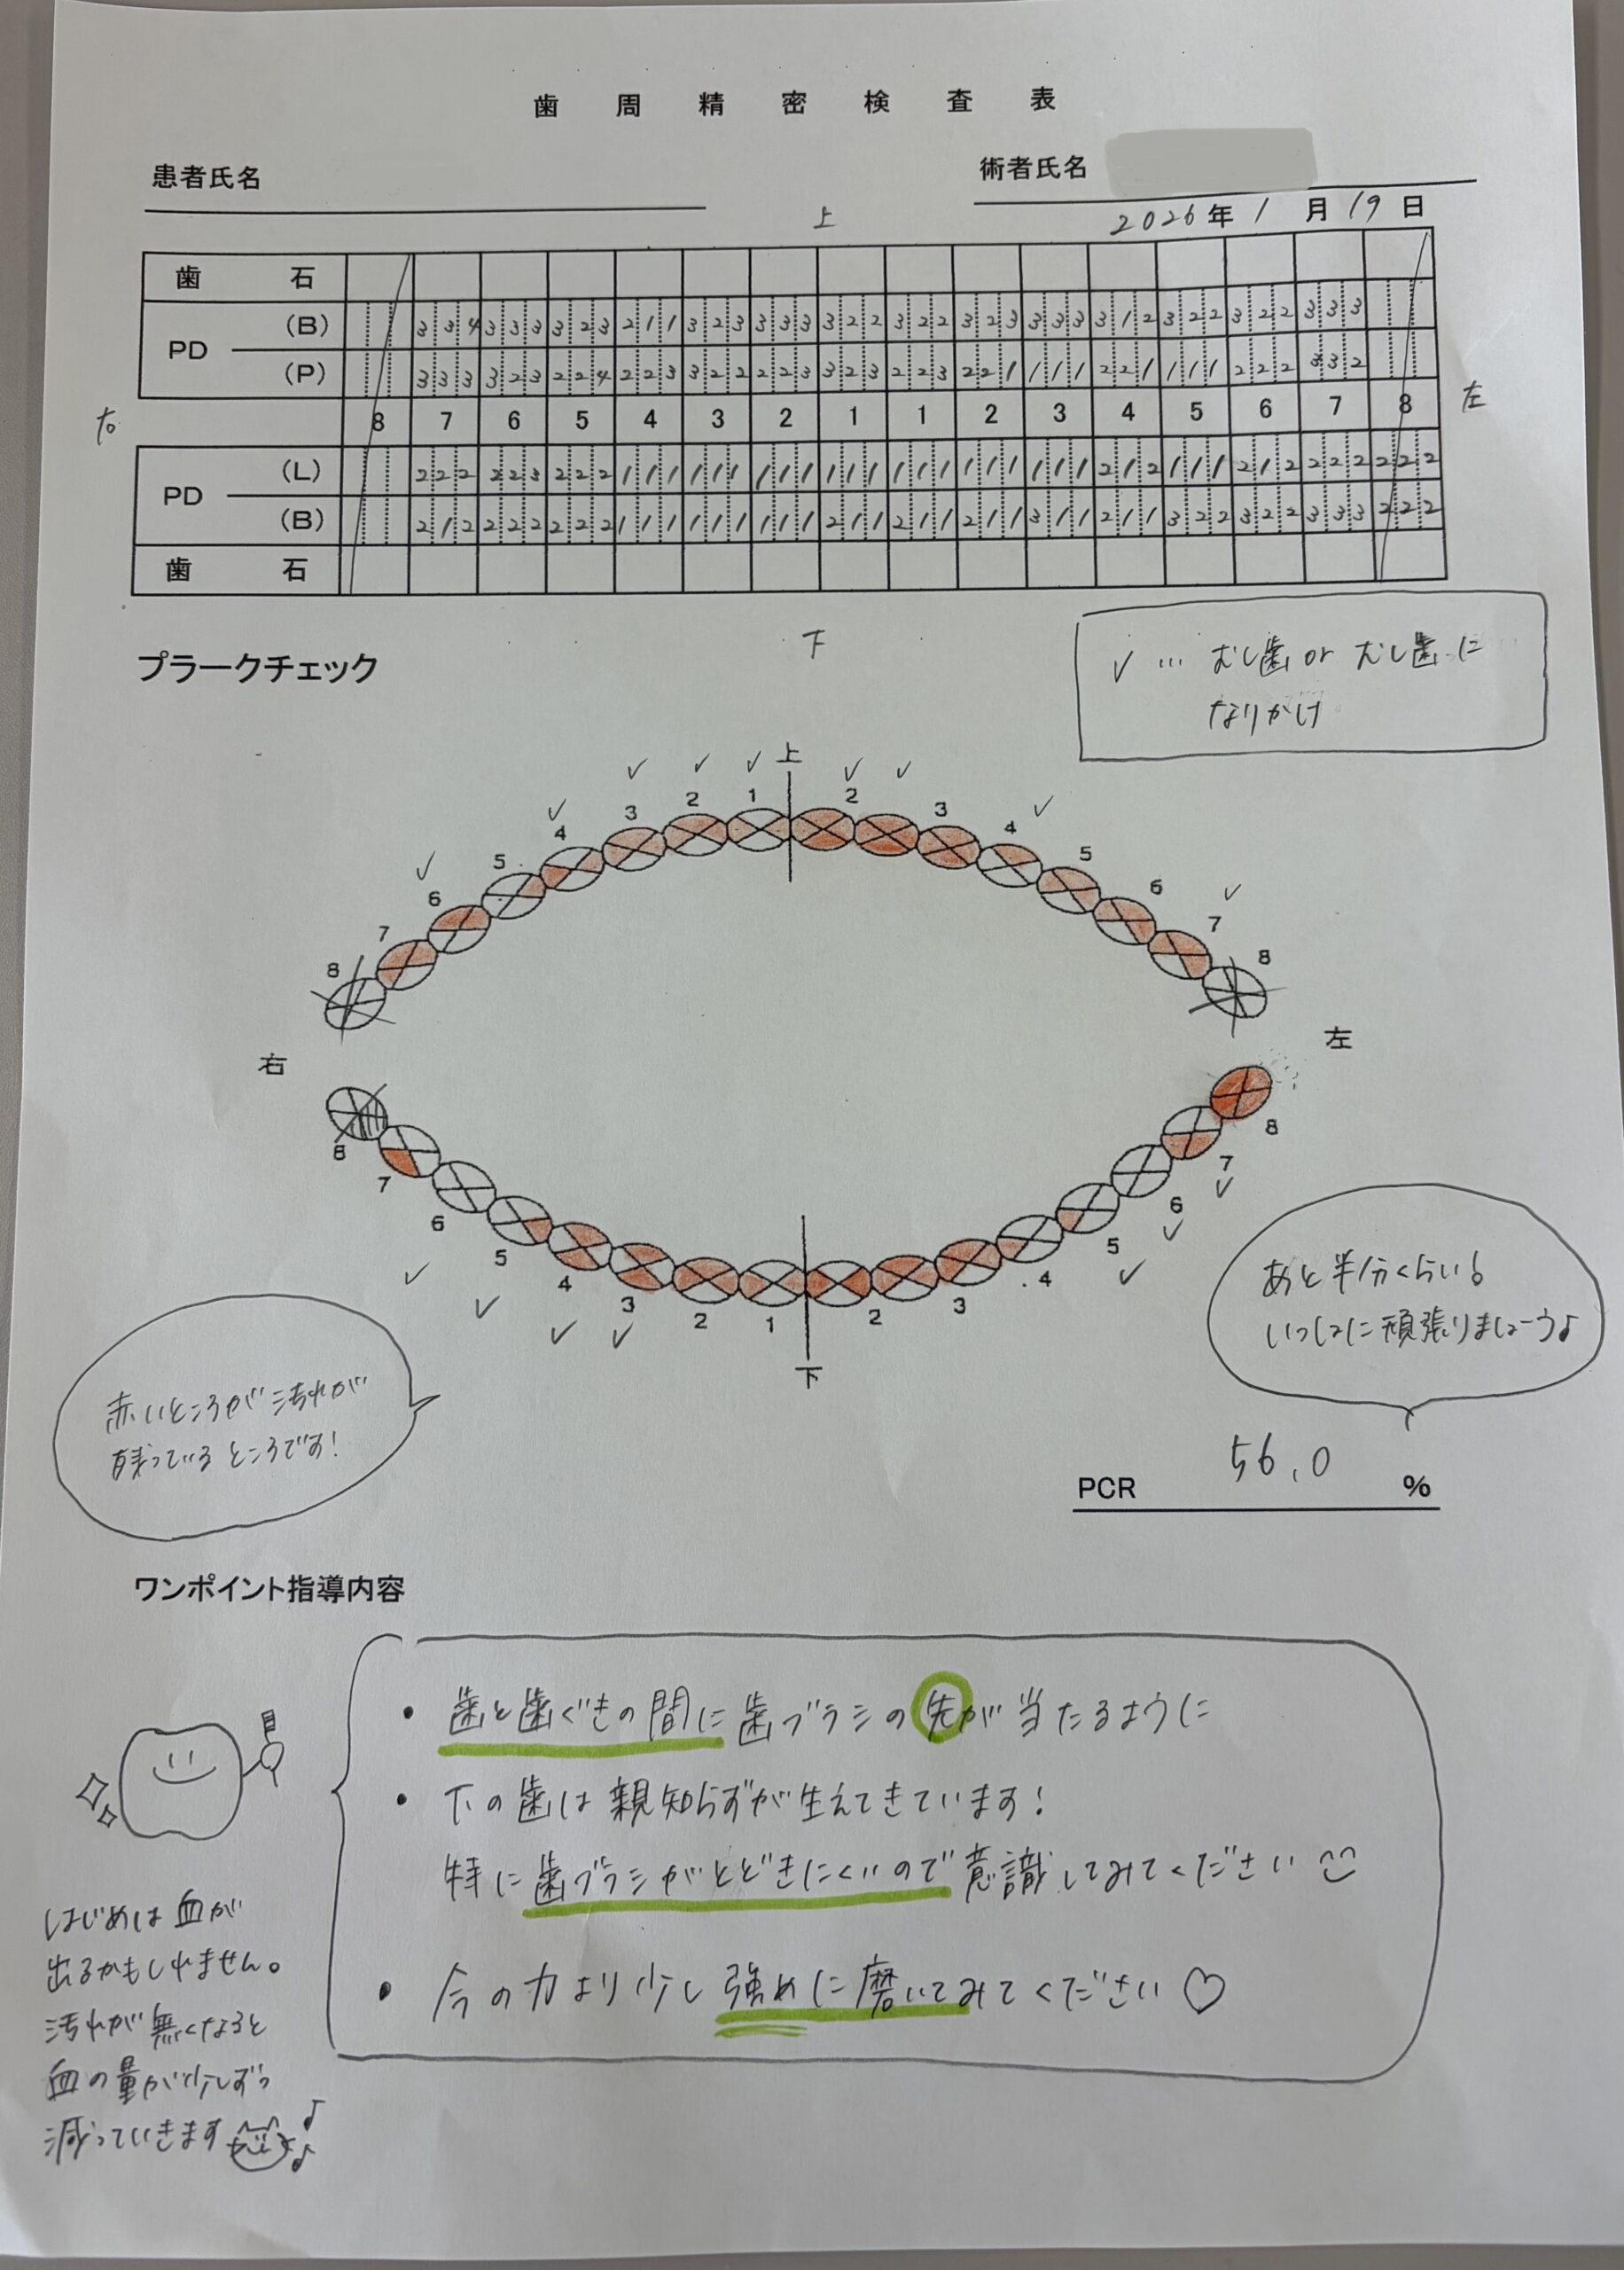 歯周精密検査表
患者氏名
術者氏名
2026年1月19日
上
歯石
PD (B) 334 333 323 211 323 333 322 322 323 333 312 322 322 333
(P) 333 323 224 223 322 223 323 223 221 111 221 111 222 332
右 8 7 6 5 4 3 2 1 1 2 3 4 5 6 7 8 左
PD (L) 222 223 222 111 111 111 111 111 111 111 212 111 212 222 222
(B) 212 222 222 111 111 111 211 211 211 311 211 322 322 333 222
歯石
下
プラークチェック
✓…むし歯orむし歯に
なりかけ
上
✓ ✓ ✓ ✓ ✓ ✓ ✓ ✓ ✓
8 7 6 5 4 3 2 1 2 3 4 5 6 7 8
右 左
8 7 6 5 4 3 2 1 2 3 4 5 6 7 8
✓ ✓ ✓ ✓ ✓ ✓ ✓
下
赤いところが汚れが
残っているところです!
あと半分くらい!
いっしょに頑張りましょーう♪
PCR 56.0 %
ワンポイント指導内容
・歯と歯ぐきの間に歯ブラシの先が当たるように
・下の歯は親知らずが生えてきています!
特に歯ブラシがとどきにくいので意識してみてください
・今の力より少し強めに磨いてみてください♡
はじめは血が
出るかもしれません。
汚れが無くなると
血の量が少しずつ
減っていきます♪♪